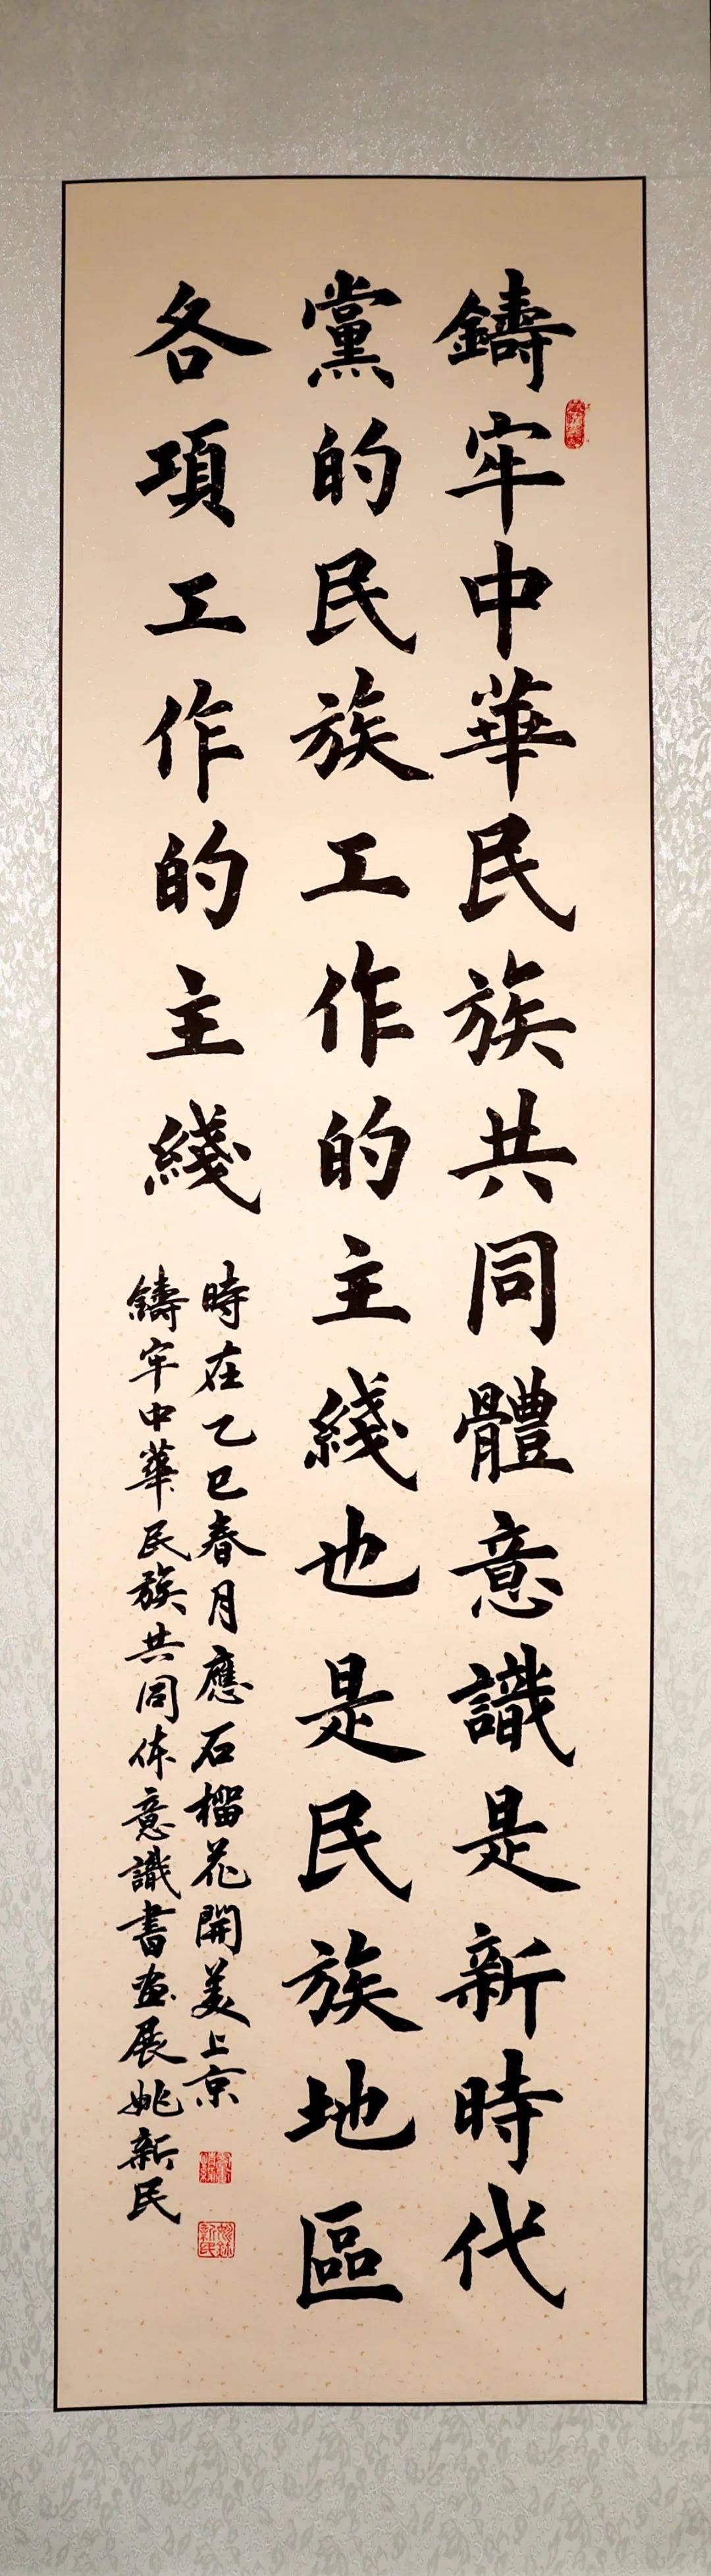 鑄牢中華民族共同體意識是新時代
黨的民族工作的主綫也是民族地區
各項工作的主綫
時在乙巳春月應石榴花開美上京
鑄牢中華民族共同体意識書画展姚新民